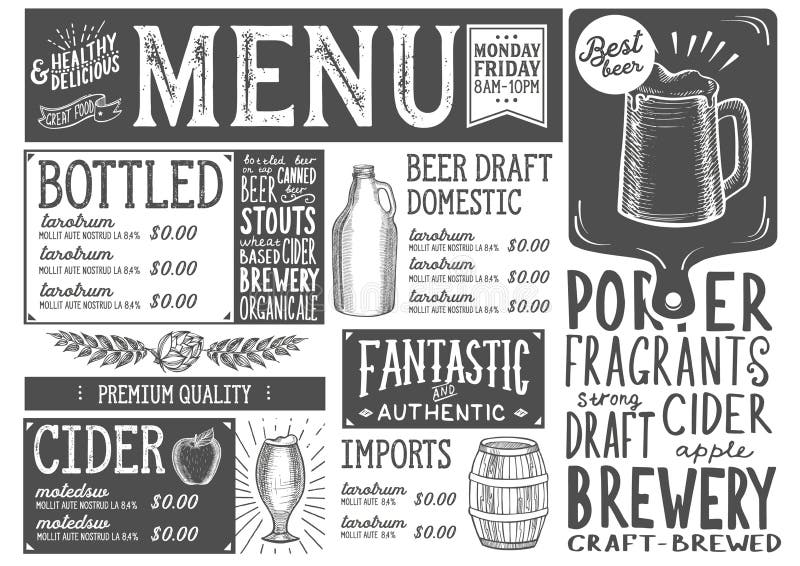 & HEALTHY
DELICIOUS
GREAT FOOD
MENU
MONDAY
FRIDAY
8AM-10PM
Best
beer
BOTTLED
tarotrum
MOLLIT AUTE NOSTRUD LA 8,4% $0.00
tarotrum
MOLLIT AUTE NOSTRUD LA 8,4% $0.00
tarotrum
MOLLIT AUTE NOSTRUD LA 8,4% $0.00
bottled beer
on tap CANNED
BEER beer
STOUTS
wheat CIDER
BASED
BREWERY
ORGANIC ALE
BEER DRAFT
DOMESTIC
tarotrum
MOLLIT AUTE NOSTRUD LA 8,4% $0.00
tarotrum
MOLLIT AUTE NOSTRUD LA 8,4% $0.00
tarotrum
MOLLIT AUTE NOSTRUD LA 8,4% $0.00
PREMIUM QUALITY
CIDER
motedsw
MOLLIT AUTE NOSTRUD LA 8,4% $0.00
motedsw
MOLLIT AUTE NOSTRUD LA 8,4% $0.00
FANTASTIC
AND
AUTHENTIC
IMPORTS
tarotrum
MOLLIT AUTE NOSTRUD LA 8,4% $0.00
tarotrum
MOLLIT AUTE NOSTRUD LA 8,4% $0.00
PORTER
FRAGRANTS
strong CIDER
DRAFT apple
BREWERY
CRAFT-BREWED